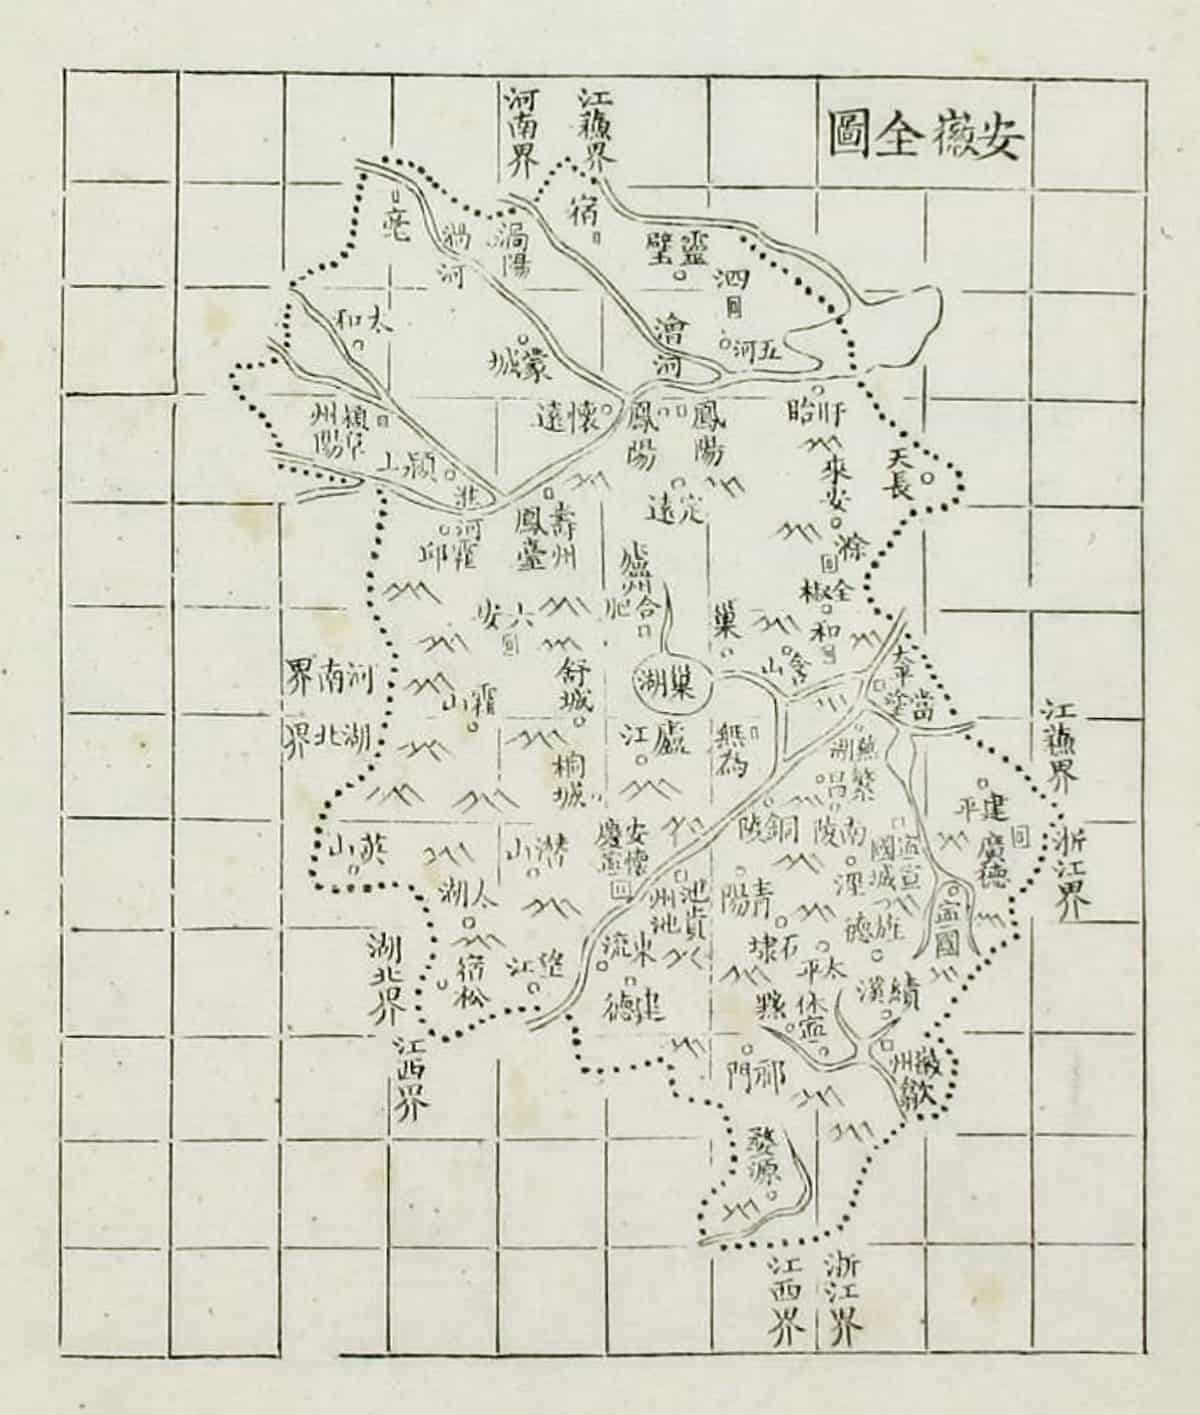 安徽全圖
江蘇界
河南界
宿
亳
渦河
渦陽
靈璧
泗
太和
澮河
五河
蒙城
懷遠
鳳陽
鳳陽
盱眙
潁州
阜陽
潁上
天長
來安
定遠
淮河
壽州
鳳臺
霍邱
滁
全椒
廬州
合肥
六安
巢
和
含山
河南界
湖北界
霍山
舒城
巢湖
太平
當塗
江蘇界
廬江
無為
蕪湖
繁昌
桐城
建平
廣德
浙江界
英山
潛山
安慶
懷寧
銅陵
南陵
寧國
宣城
太湖
池州
貴池
青陽
涇
旌德
寧國
湖北界
宿松
望江
東流
石埭
太平
建德
黟
休寧
績溪
江西界
祁門
徽州
歙
婺源
浙江界
江西界